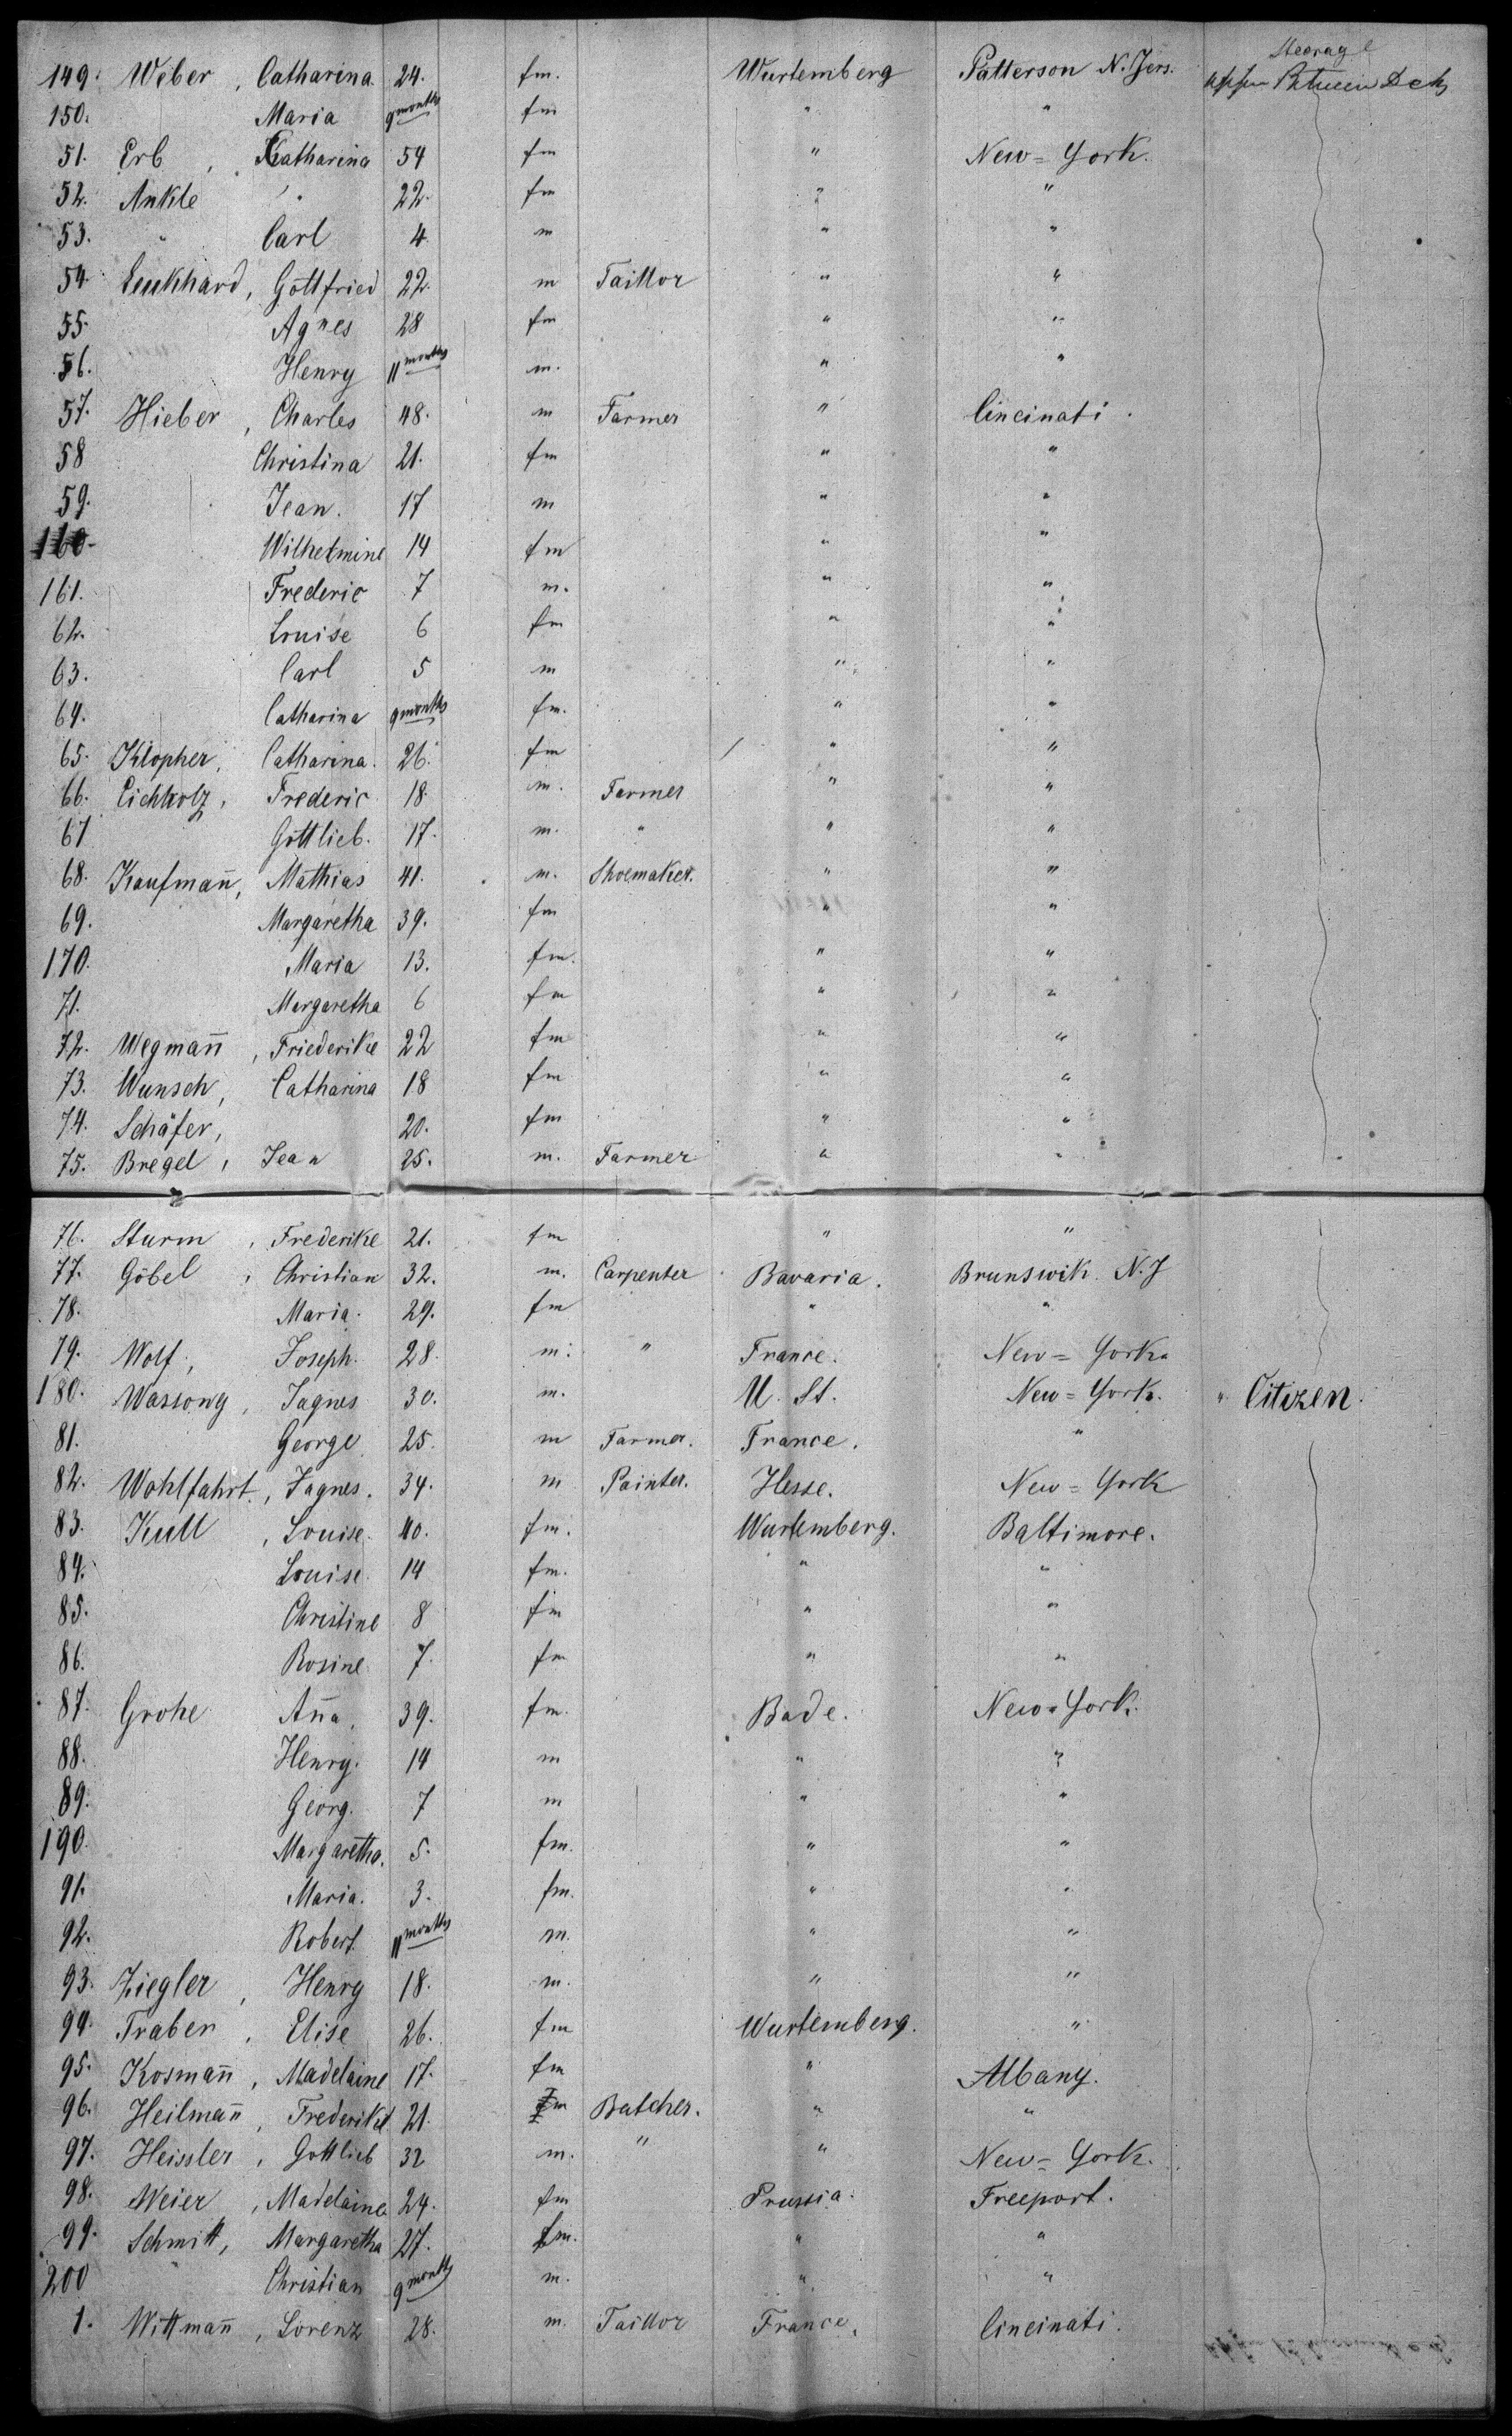 Steerage
149. Weber, Catharina. 24. fm. Wurtemberg Patterson N. Jers. upper Between Deck
150. Maria 9 months fm " "
51. Erb, Catharina 54 fm " New=York.
52. Ankle " 22. fm " "
53. " Carl 4 m " "
54. Leukhard, Gottfried 22. m Taillor " "
55. Agnes 28 fm " "
56. Henry 11 months m. " "
57. Hieber, Charles 48. m Farmer " Cincinati.
58 Christina 21. fm " "
59. Jean. 17 m " "
160. Wilhelmine 14 fm " "
161. Frederic 7 m. " "
62. Louise 6 fm " "
63. Carl 5 m " "
64. Catharina 9 months fm. " "
65. Klopher, Catharina. 26. fm " "
66. Eichholz, Frederic 18. m. Farmer " "
67 Gottlieb. 17. m. " " "
68. Kaufmañ, Mathias 41. m. Shoemaker. " "
69. Margaretha 39. fm " "
170. Maria 13. fm. " "
71. Margaretha 6 fm " "
72. Wegmañ, Friederike 22 fm " "
73. Wunsch, Catharina 18 fm " "
74. Schäfer, 20. fm " "
75. Bregel, Jean 25. m. Farmer " "
76. Sturm, Frederike 21. fm " "
77. Göbel, Christian 32. m. Carpenter Bavaria. Brunswik. N. J
78. Maria. 29. fm " "
79. Wolf, Joseph. 28. m. " France. New=York.
180. Wassong, Jagnes 30. m. U. St. New=York. " Citizen.
81. George 25. m Farmer. France. "
82. Wohlfahrt, Jagnes. 34. m Painter. Hesse. New=York
83. Kull, Louise. 40. fm. Wurtemberg. Baltimore.
84. Louise. 14 fm. " "
85. Christine 8 fm " "
86. Rosine 7. fm " "
87. Grohe Aña, 39. fm. Bade. New=York.
88. Henry. 14 m " "
89. Georg. 7 m " "
190. Margaretha. 5. fm. " "
91. Maria. 3. fm. " "
92. Robert. 11 months m. " "
93. Ziegler, Henry 18. m. " "
94. Traber, Elise 26. fm Wurtemberg. "
95. Kosmañ, Madelaine 17. fm " Albany.
96. Heilmañ, Frederike 21. m Butcher. " "
97. Heissler, Gottlieb 32 m. " " New=York.
98. Weier, Madelaine 24. fm Prussia. Freeport.
99. Schmitt, Margaretha 27. fm. " "
200 " Christian 9 months m. " "
1. Wittmañ, Lorenz 28. m. Taillor France. Cincinati.